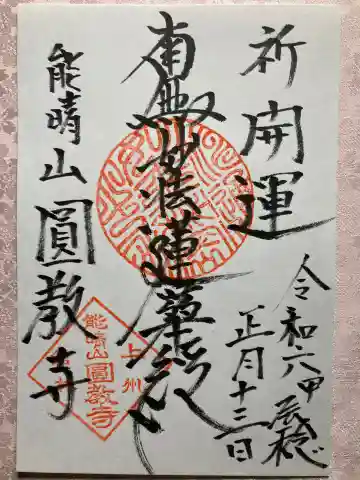 祈開運
南無妙法蓮華経
能晴山圓教寺
令和六甲辰稔
正月十三日
能晴山
上州
圓教寺